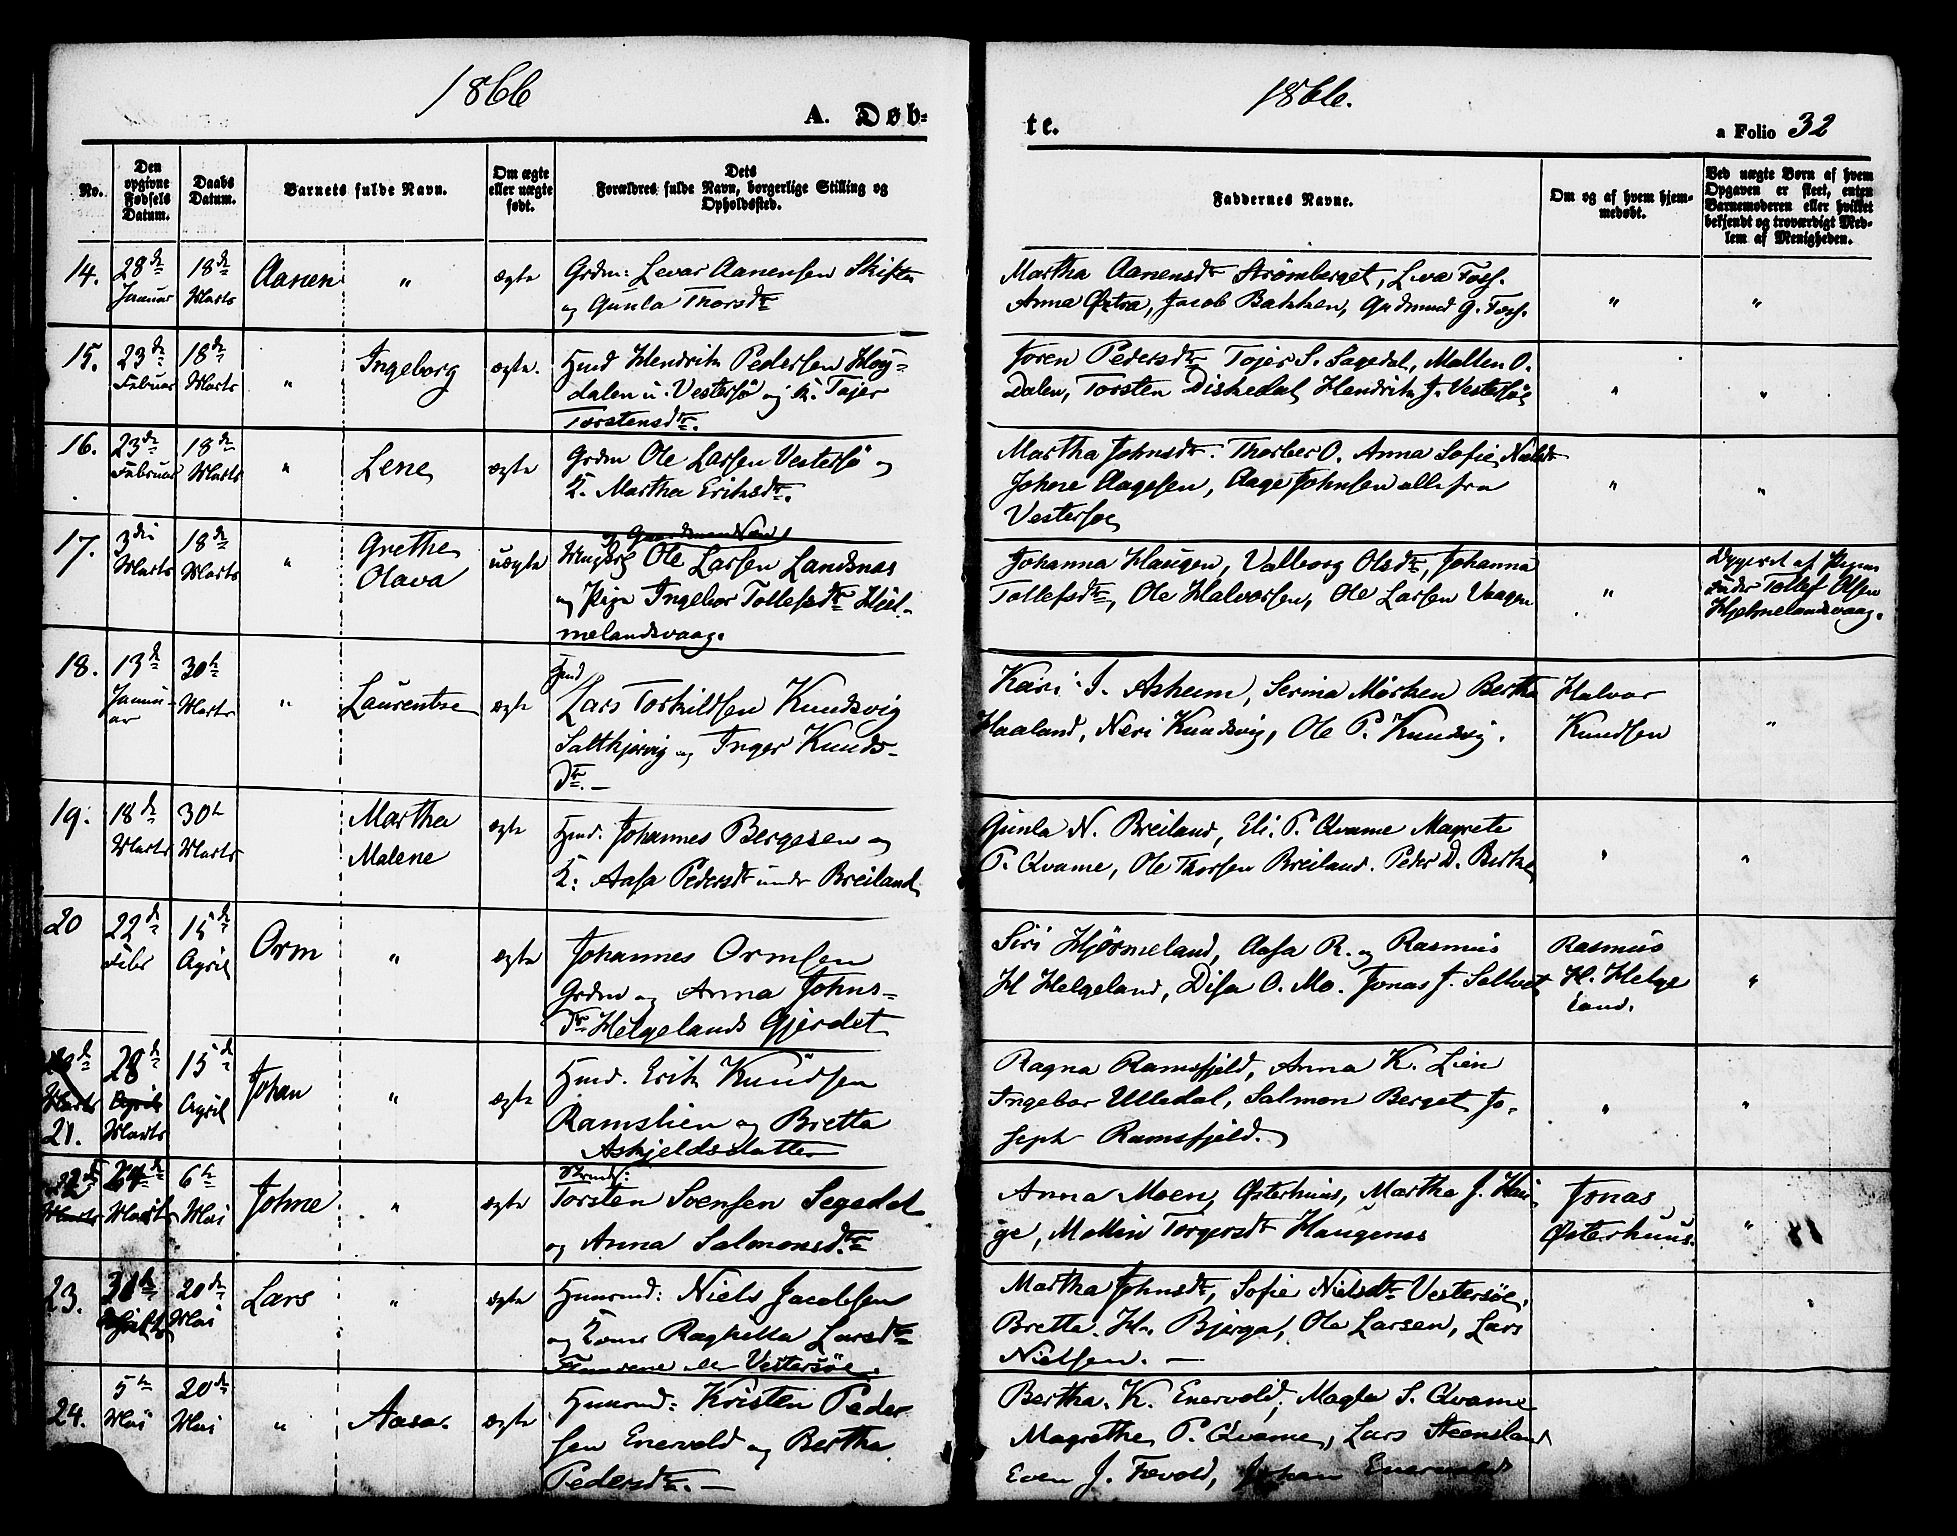 1866
1866.
A. Døb-
te.
a Folio 32
No.
Den opgivne Fødsels Datum.
Daabs Datum.
Barnets fulde Navn.
Om ægte eller uægte født.
Dets Forældres fulde Navn, borgerlige Stilling og Opholdssted.
Faddernes Navne.
Om og af hvem hjemmedøbt.
Ved uægte Børn af hvem Opgaven er skeet, enten Barnemoderen eller hvilket bekjendt og troværdigt Medlem af Menigheden.
14. 28de Januar 18de Marts Aanen " ægte
Grdm: Levar Aanensen
og Gunla Thorsdtr
Martha Aanensdtr Strømberget,
Anna Jacob Bakken, Gudmund G.
" "
15. 23de Februar 18de Marts " Ingeborg ægte.
Hmd Hendrik Pedersen Høy-
dalen u. Vestersø og K. Tojer
Torstensdtr.
Joren Pedersdtr Tojer S. Sagedal, Mallen O.
Dalen, Torsten Diskedal Hendrik J. Vestersøe
" "
16. 23de Februar 18de Marts " Lene ægte
Grdm Ole Larsen Vestersø og
K. Martha Eriksdtr.
Martha Johnsdtr. Thorber O. Anna Sofie Nielsdtr
Johne Aagesen, Aage Johnsen alle fra
Vestersøe
" "
17. 3die Marts 18de Marts " Grethe Olava uægte
Ungkrl Ole Larsen Landsnæs
og Pige Ingebor Tollefsdtr Hjel-
melandsvaag.
Johanna Haugen, Valborg Olsdtr, Johanna
Tollefsdtr, Ole Halvorsen, Ole Larsen Vaagen
"
Opgivet af Pigens
Fader Tollef Olsen
Hjelmelandsvaag.
18. 13de Januar 30te Marts " Laurentse ægte
Hmd
Lars Torkildsen Knudsvig
og Inger Knuds-
Dtr. –
Kari I. Asheim, Serina Mørken Bertha
Haaland, Neri Knudsvig, Ole P. Knudsvig.
Halvor
Knudsen
"
19. 18de Marts 30te Marts Martha Malene ægte
Hmd. Johannes Bergesen og
K: Aasa Pedersdtr under Breiland
Gunla N. Breiland, Eli P. Qvame Magrete
P. Qvame, Ole Thorsen Breiland. Peder D.
" "
20 22de Febr 15de April Orm " ægte
Johannes Ormsen
Grdm og Anna Johns-
Dtr Helgelands Gjerdet
Siri Hjørmeland, Aasa R. og Rasmus
H Helgeland, Disa O. Mo. Jonas J.
Rasmus
H. Helge
land.
"
21. 28de Marts 15de April Johan " ægte
Hmd. Erik Knudsen
Ramslien og Bretta
Askjeldsdatter
Ragna Ramsfjeld, Anna K. Lien
Ingebor Ulledal, Salmon Berget, Jo-
seph Ramsfjeld.
" "
22 24de Marts 6te Mai Johne " ægte
Torsten Svensen Segedal
og Anna Salmonsdtr
Anna Moen, Østerhuus, Martha J. Hau
ge, Mallin Torgersdtr Haugenæs
Jonas
Østerhuus.
"
23. 20de Mai Lars " ægte
Huusmd: Niels Jacobsen
og Kone Raghilla Larsdtr
Vestersøe.
Martha Johnsdtr, Sofie Nielsdtr Vestersøe,
Bretta H. Bjerga, Ole Larsen, Lars
Nielsen. –
24. 5te Mai 20de Mai " Aasa. ægte
Huusmd: Kristen Peder
sen Enervold og Bertha
Pedersdtr. –
Bertha K. Enervold, Magla S. Qvame
Magrethe P. Qvame, Lars Steensland
Even J. Johan Enervold